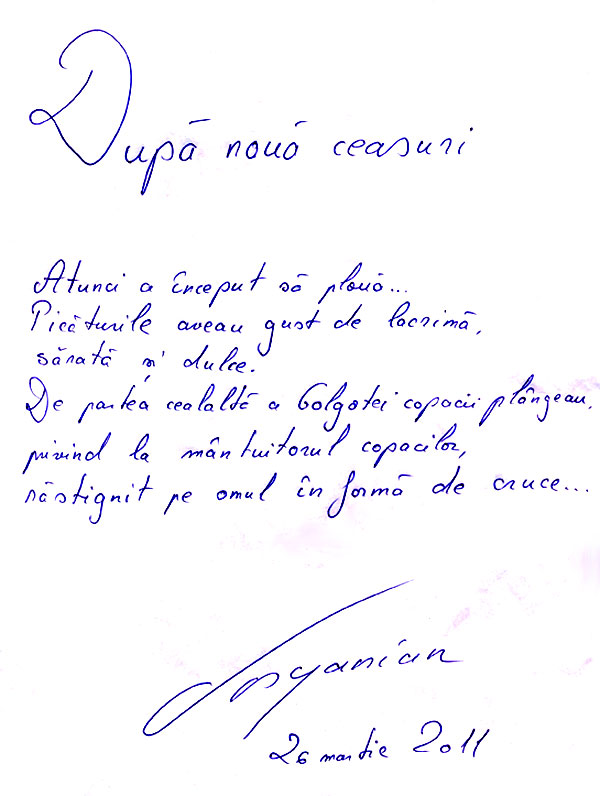 După nouă ceasuri
Atunci a început să plouă...
Picăturile aveau gust de lacrimă,
sărată și dulce.
De partea cealaltă a Golgotei copacii plângeau,
privind la mântuitorul copacilor,
răstignit pe omul în formă de cruce...
Vosganian
26 martie 2011